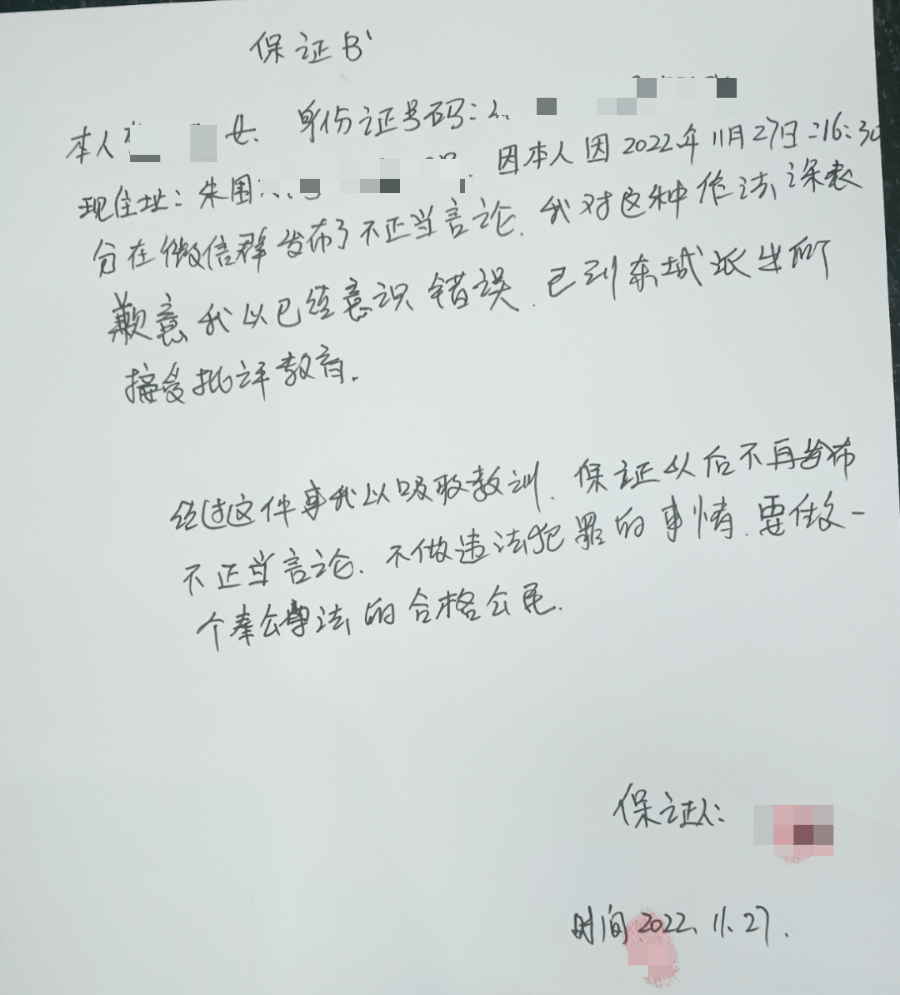 保证书
本人 女、身份证号码:
现住址:朱围 因本人因2022年11月27日16:30
分在微信群发布了不正当言论、我对这种作法深表
歉意我以已经意识错误、已到东城派出所
接受批评教育.
经过这件事我以吸取教训、保证以后不再发布
不正当言论、不做违法犯罪的事情、要做一
个奉公守法的合格公民.
保证人:
时间2022、11.27.